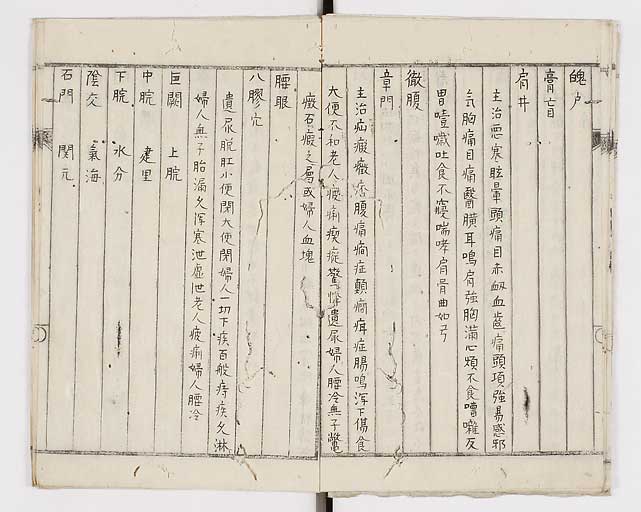 魄戶
膏肓
肩井
主治惡寒眩暈頭痛目赤衂血齒痛頭項強易感邪
氣胸痛目痛翳膜耳鳴肩強胸滿心煩不食嘈雜反
胃噎嘔吐食不寢喘哮肩骨曲如弓
徹腹
章門
主治疝瘕癥痞腹痛癇症顛癇症腸鳴瀉下傷食
大便不和老人疲痢瘈瘲驚悸遺尿婦人腰冷無子鱉
癥石瘕之屬或婦人血塊
腰眼
八髎穴
遺尿脫肛小便閉大便閉婦人一切下疾百般痔疾久淋
婦人無子胎漏久瀉寒泄虛泄老人疲痢婦人腰冷
巨闕 上脘
中脘 建里
下脘 水分
陰交 氣海
石門 関元